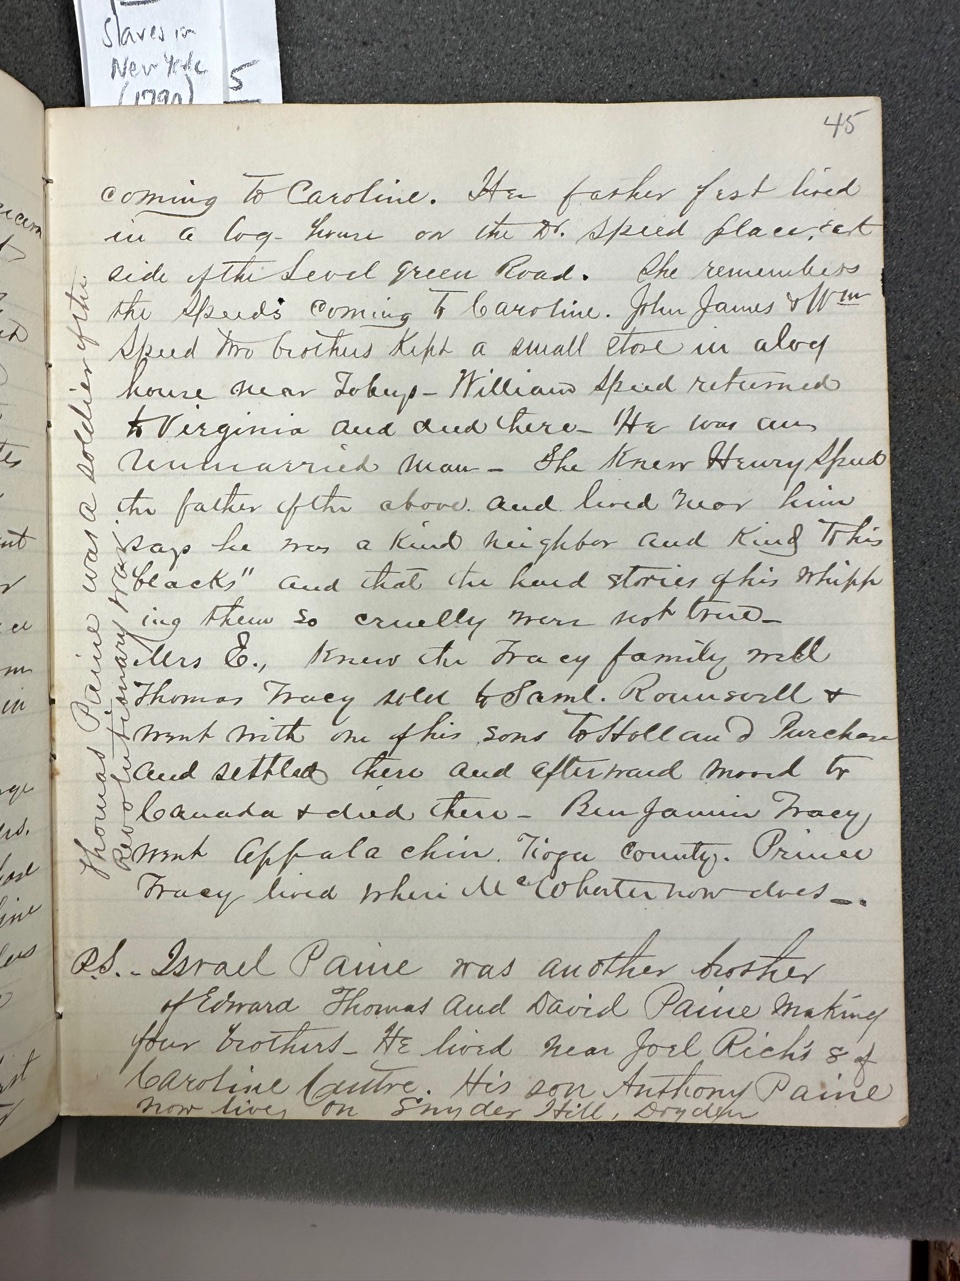 Slaves in
New York
(1790)
5
45
coming to Caroline. Her father first lived
in a log-house on the Dr. Speed place, east
side of the Level Green Road. She remembers
the Speeds coming to Caroline. John James & Wm
Speed two brothers Kept a small store in a log
house near Tobeys - William Speed returned
to Virginia and died there - He was an
unmarried man - She Knew Henry Speed
the father of the above and lived near him
says he was a Kind neighbor and Kind to his
"blacks" and that the hard stories of his whipp
ing them so cruelly were not true -
Mrs E., Knew the Tracy family well
Thomas Tracy sold to Saml. Rounsvell &
went with one of his sons to Holland Purchase
and settled there and afterward moved to
Canada & died there - Benjamin Tracy
went Appalachin, Tioga County. Prince
Tracy lived where McWhorter now does -.
P.S. - Israel Paine was another brother
of Edward Thomas and David Paine making
four brothers - He lived near Joel Rich's S of
Caroline Centre. His son Anthony Paine
now lives on Snyder Hill, Dryden
Thomas Paine was a soldier of the
Revolutionary War.